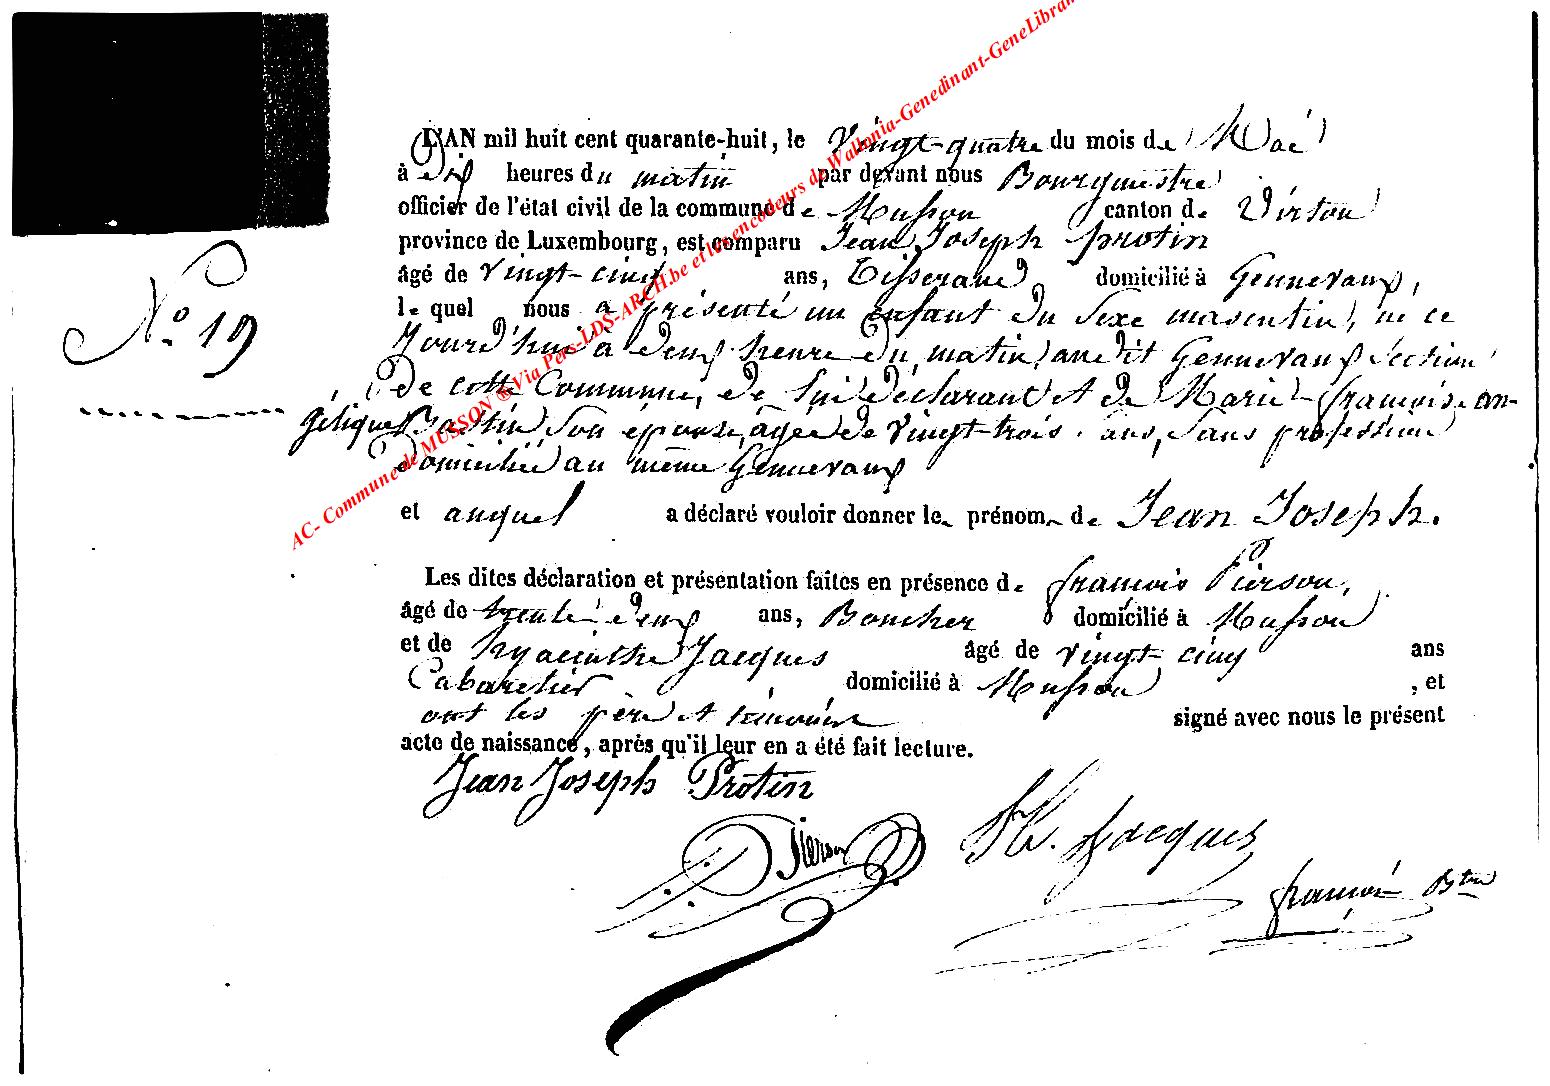 L'AN mil huit cent quarante-huit, le Vingt-quatre du mois de Mai
à dix heures du matin par devant nous Bourgmestre
officier de l'état civil de la commune de Musson canton de Virton
province de Luxembourg, est comparu Jean Joseph protin
âgé de Vingt-cinq ans, Tisserand domicilié à Gennevaux,
le quel nous a présenté un enfant du sexe masculin, né ce
Jourd'hui à deux heure du matin, au dit Gennevaux section
de cette Commune, de lui déclarant et de Marie françoise an-
gélique Bastin son épouse, âgée de vingt-trois ans, sans profession
domiciliée au même Gennevaux
et auquel a déclaré vouloir donner le prénom de Jean Joseph.
N.o 19
Les dites déclaration et présentation faites en présence de françois Pierson,
âgé de trente deux ans, Boucher domicilié à Musson
et de hyacinthe Jacques âgé de vingt cinq ans
Cabaretier domicilié à Musson , et
ont les père et témoins signé avec nous le présent
acte de naissance, après qu'il leur en a été fait lecture.
Jean Joseph Protin
Pierson
H. Jacques
AC- Commune de MUSSON ® Via Pers-LDS-ARCH.be et les encodeurs de Wallonia-Genedinant-GeneLibran